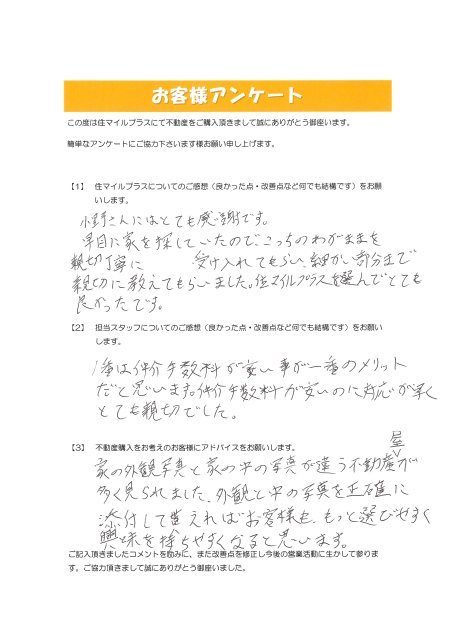 お客様アンケート
この度は住マイルプラスにて不動産をご購入頂きまして誠にありがとう御座います。
簡単なアンケートにご協力下さいます様お願い申し上げます。
【1】 住マイルプラスについてのご感想（良かった点・改善点など何でも結構です）をお願
いします。
さんにはとても感謝です。
早目に家を探していたので、こっちのわがままを
親切丁寧に 受け入れてもらい、細かい部分まで
親切に教えてもらいました。住マイルプラスを選んでとても
良かったです。
【2】 担当スタッフについてのご感想（良かった点・改善点など何でも結構です）をお願い
します。
1番は仲介手数料が安い事が一番のメリット
だと思います。仲介手数料が安いのに対応が早く
とても親切でした。
【3】 不動産購入をお考えのお客様にアドバイスをお願いします。
屋
家の外観写真と家の中の写真が違う不動産が
多く見られました。外観と中の写真を正確に
添付して貰えればお客様も、もっと選びやすく
興味を持ちやすくなると思います。
ご記入頂きましたコメントを励みに、また改善点を修正し今後の営業活動に生かして参りま
す。ご協力頂きまして誠にありがとう御座いました。